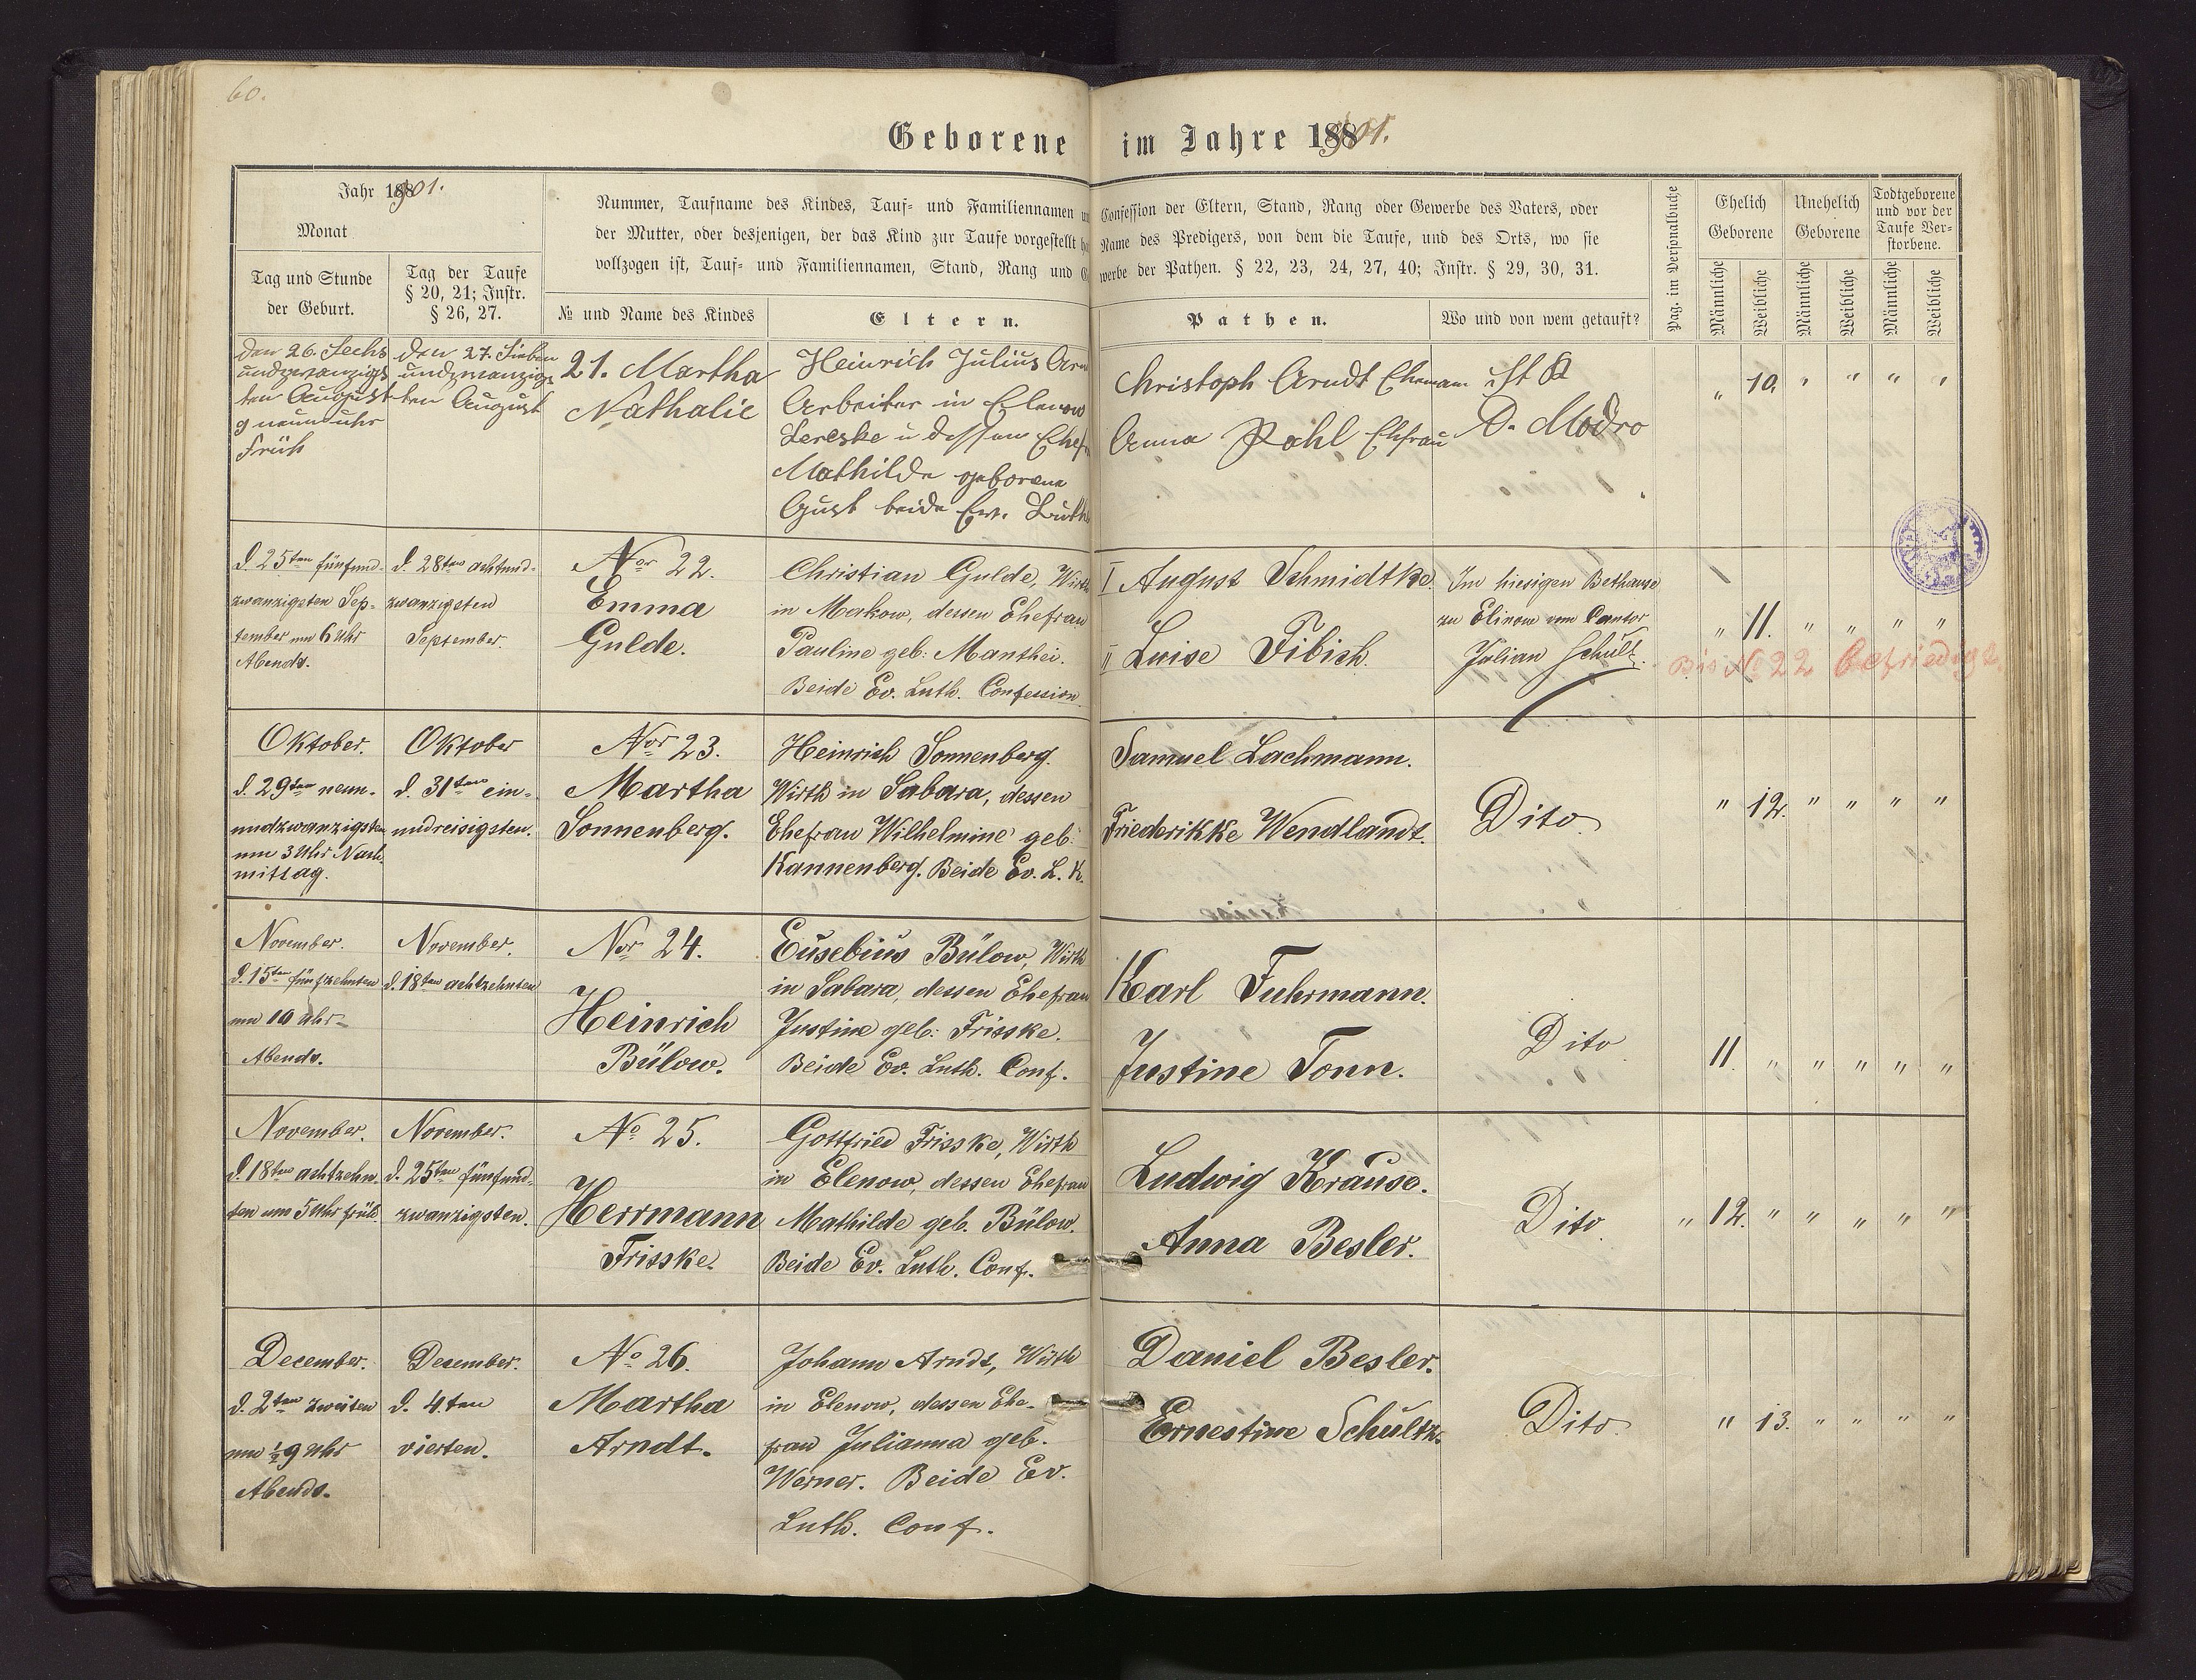 60.
Geborene im Jahre 1901.
Jahr 1901.
Monat
Tag und Stunde
der Geburt.
Tag der Taufe
§ 20, 21; Instr.
§ 26, 27.
Nummer, Taufname des Kindes, Tauf- und Familiennamen
der Mutter, oder desjenigen, der das Kind zur Taufe vorgestellt
vollzogen ist, Tauf- und Familiennamen, Stand, Rang und
№ und Name des Kindes
Eltern.
Confession der Eltern, Stand, Rang oder Gewerbe des Vaters, oder
Name des Predigers, von dem die Taufe, und des Orts, wo sie
werbe der Pathen. § 22, 23, 24, 27, 40; Instr. § 29, 30, 31.
Pathen.
Wo und von wem getauft?
Pag. im Personalbuche
Ehelich
Geborene
Unehelich
Geborene
Todtgeborene
und vor der
Taufe Ver-
storbene.
Männliche
Weibliche
Männliche
Weibliche
Männliche
Weibliche
den 26. Sechs
undzwanzigs
ten August
9 neun uhr
Früh
den 27. Sieben
undzwanzigs
ten August
21. Martha
Nathalie
Heinrich Julius
Arbeiter in Elenow
u dessen
Mathilde geborene
Gust beide Ew. Luth
Christoph Arndt Ehemann
Anna Pahl Ehfrau
D. Modro
" 10. " " " "
d. 25ten fünfund-
zwanzigsten Sep-
tember um 6 Uhr
Abends.
d. 28ten achtund-
zwanzigsten
September.
Nor 22.
Emma
Gulde.
Christian Gulde, Wirth
in Makow, dessen Ehefrau
Pauline geb: Manthei.
Beide Ev. Luth. Confession.
I August Schmidtke.
II Luise Fibich.
Im hiesigen Bethause
zu Elinow vom Cantor
Julian Schultz.
" 11. " " " "
Bis № 22 befriedigt
Oktober.
d. 29ten neun-
undzwanzigsten
um 3 Uhr Nach-
mittag.
Oktober
d. 31ten ein-
undreisigsten.
Nor 23.
Martha
Sonnenberg.
Heinrich Sonnenberg.
Wirth in Sabara, dessen
Ehefrau Wilhelmine geb:
Kannenberg. Beide Ev. L. K.
Samuel Lachmann.
Friederikke Wendlandt.
Dito
" 12. " " " "
November.
d. 15ten fünfzehnten
um 10 Uhr
Abends.
November.
d. 18ten achtzehnten
Nor 24.
Heinrich
Bülow.
Eusebius Bülow, Wirth
in Sabara, dessen Ehefrau
Justine geb: Frisske.
Beide Ev. Luth. Conf.
Karl Fuhrmann.
Justine Tonn.
Dito
11. " " " " "
November.
d. 18ten achtzehn-
ten um 5 Uhr früh.
November.
d. 25ten fünfund-
zwanzigsten.
No 25.
Herrmann
Frisske.
Gottfried Frisske, Wirth
in Elenow, dessen Ehefrau
Mathilde geb. Bülow.
Beide Ev. Luth. Conf.
Ludwig Krause.
Anna Besler.
Dito.
" 12. " " " " "
December.
d. 2ten zweiten
um ½9 Uhr
Abends.
December.
d. 4.ten
vierten.
No 26.
Martha
Arndt.
Johann Arndt, Wirth
in Elenow, dessen Ehe-
frau Julianna geb.
Werner. Beide Ev.
Luth. Conf.
Daniel Besler.
Ernestine Schultz.
Dito.
" 13. " " " "